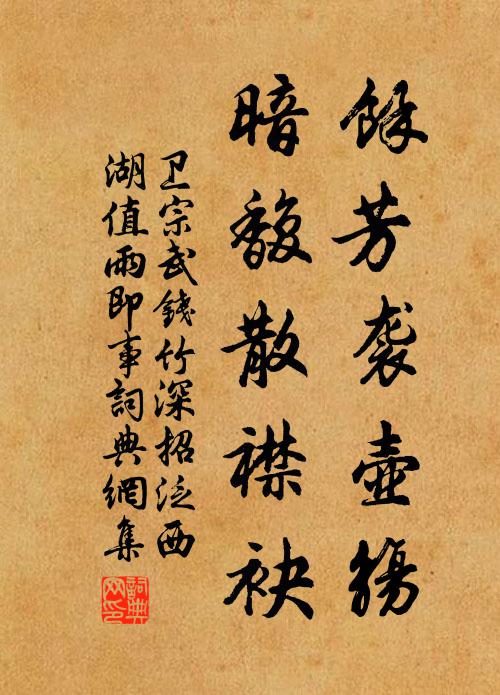 餘芳袭壺觞
暗馥散襟袂
卫宗武錢竹深招泛西
湖值雨即事詞典網集
詞典网印